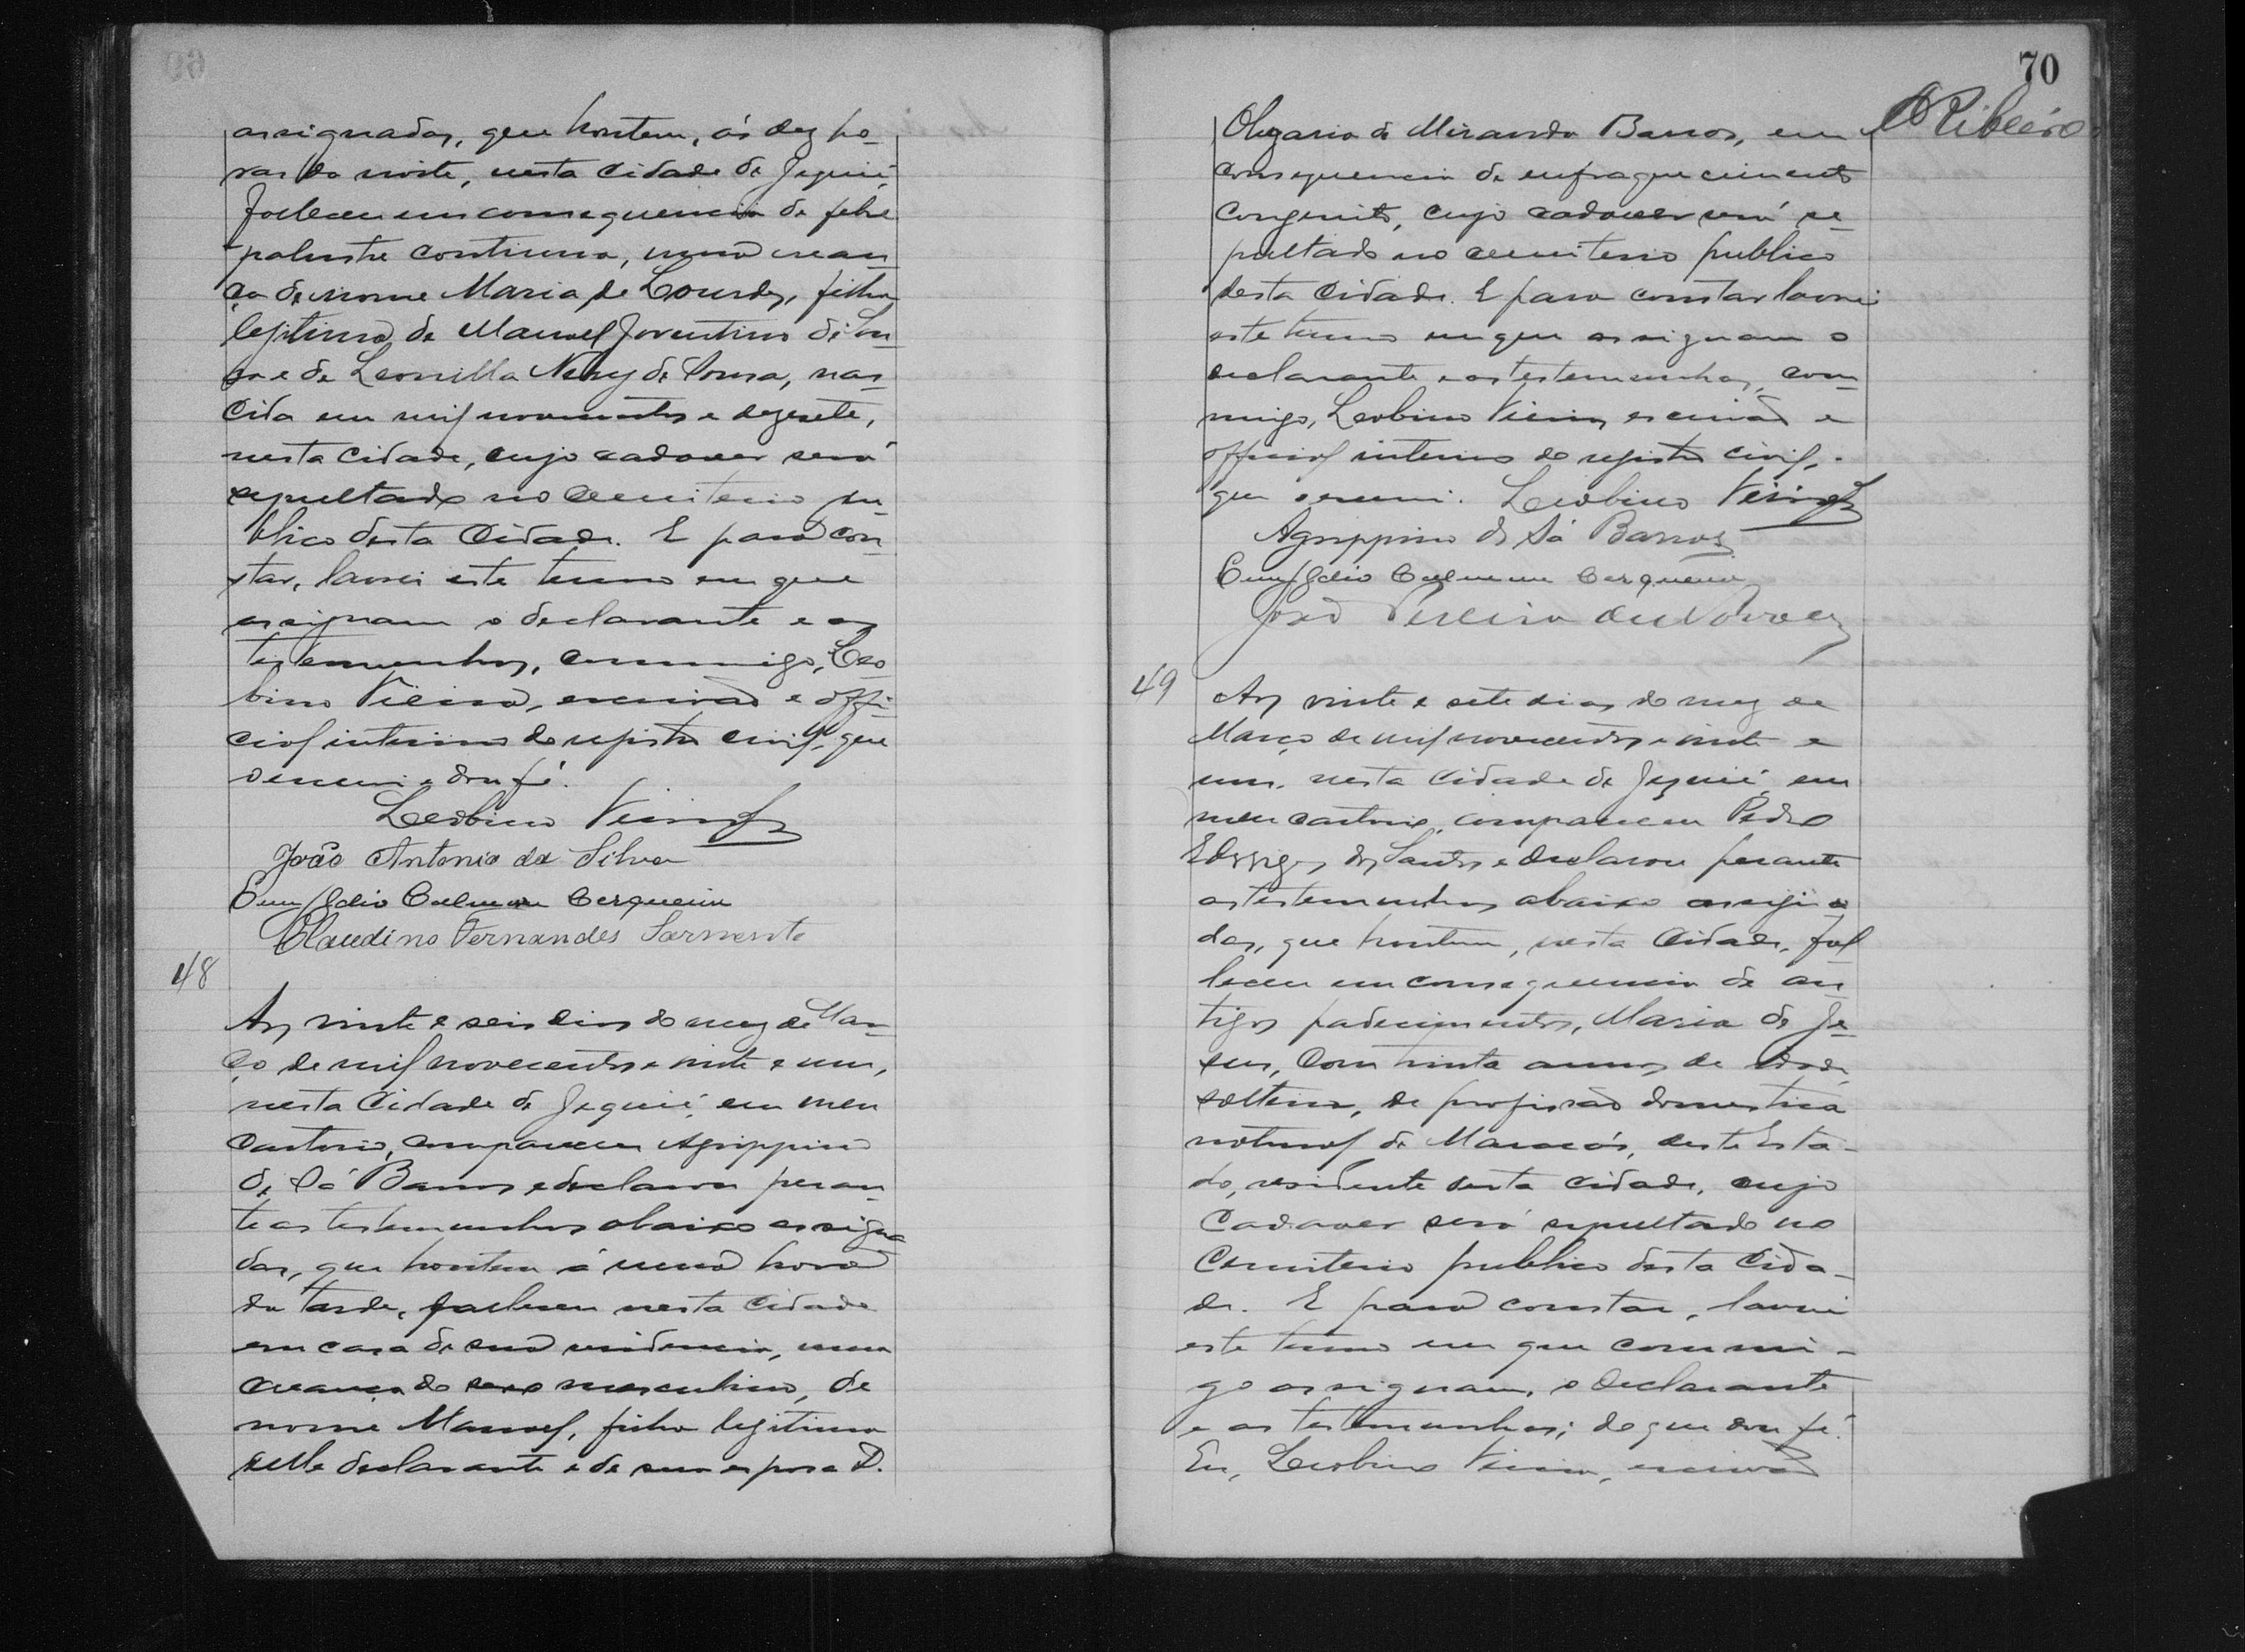 assignadas, que hontem, ás dez ho-
ras da noite, nesta Cidade de Jequié,
falleceu em consequencia de febre
palustre continua, uma crean-
ça de nome Maria de Lourdes, filha
legitima de Manoel Joventino de Sou-
sa e de Leonilla Nery de Sousa, nas-
cida em mil novecentos e dezesete,
nesta Cidade, cujo cadaver será
sepultado no cemiterio pu-
blico desta Cidade. E para con-
star, lavrei este termo em que
assignam o declarante e as
testemunhas, commigo, Leo-
bino Vieira, escrivão e offi-
cial interino do registro civil, que
o escrevi e dou fé.
Leobino Vieira
João Antonio da Silva
Emygdio Culmem Cerqueira
Claudino Fernandes Sarmento
48
Aos vinte e seis dias do mez de Mar-
ço de mil novecentos e vinte e um,
nesta Cidade de Jequié, em meu
Cartorio, compareceu Agrippino
de Sá Barros e declarou peran-
te as testemunhas abaixo assigna
das, que hontem á uma hora
da tarde, falleceu nesta Cidade
em casa de sua residencia, uma
creança do sexo masculino, de
nome Manoel, filho legitimo
delle declarante e de sua esposa D.
70
Ribeiro
Olegaria de Miranda Barros, em
consequencia de enfraquecimento
congenito, cujo cadaver será se-
pultado no cemiterio publico
desta Cidade. E para constar lavrei
este termo em que assignam o
declarante e as testemunhas, com-
migo, Leobino Vieira, escrivão e
official interino do registro civil,
que o escrevi. Leobino Vieira
Agrippino de Sá Barros
Emygdio Culmem Cerqueira
José Pereira de Novaes
49
Aos vinte e sete dias do mez de
Março de mil novecentos e vinte e
um, nesta Cidade de Jequié, em
meu cartorio, compareceu Pedro
Edvigés dos Santos e declarou perante
as testemunhas abaixo assigna
das, que hontem, nesta Cidade, fal-
leceu em consequencia de an-
tigos padecimentos, Maria de Je-
sus, com trinta annos de idade,
solteira, de profissão domestica
natural de Maracás, deste Esta-
do, residente nesta Cidade, cujo
Cadaver será sepultado no
Cemiterio publico desta Cida-
de. E para constar, lavrei
este termo em que commi-
go assignam, o declarante
e as testemunhas; do que dou fé.
Eu, Leobino Vieira, escrivão